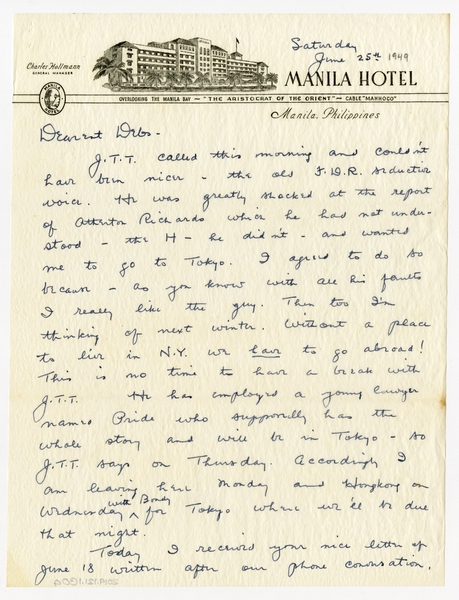 Saturday
June 25th 1949
Charles Hollmann
GENERAL MANAGER
MANILA HOTEL
OVERLOOKING THE MANILA BAY — "THE ARISTOCRAT OF THE ORIENT" — CABLE "MANHOCO"
Manila, Philippines
Dearest Debs -
J.T.T. called this morning and couldn't
have been nicer - the old F.D.R. seductive
voice. He was greatly shocked at the report
of Richards which he has not under-
stood - the H - he didn't - and wanted
me to go to Tokyo. I agreed to do so
because - as you know with all his faults
I really like the guy. Then too I'm
thinking of next winter. Without a place
to live in N.Y. we have to go abroad!
This is no time to have a break with
J.T.T. He has employed a young lawyer
named Pride who supposedly has the
whole story and will be in Tokyo - so
J.T.T. says on Thursday. Accordingly I
am leaving here Monday and Hongkong on
Wednesday with Brady for Tokyo where we'll be due
that night.
Today I received your nice letter of
June 18 written after our phone conversation.